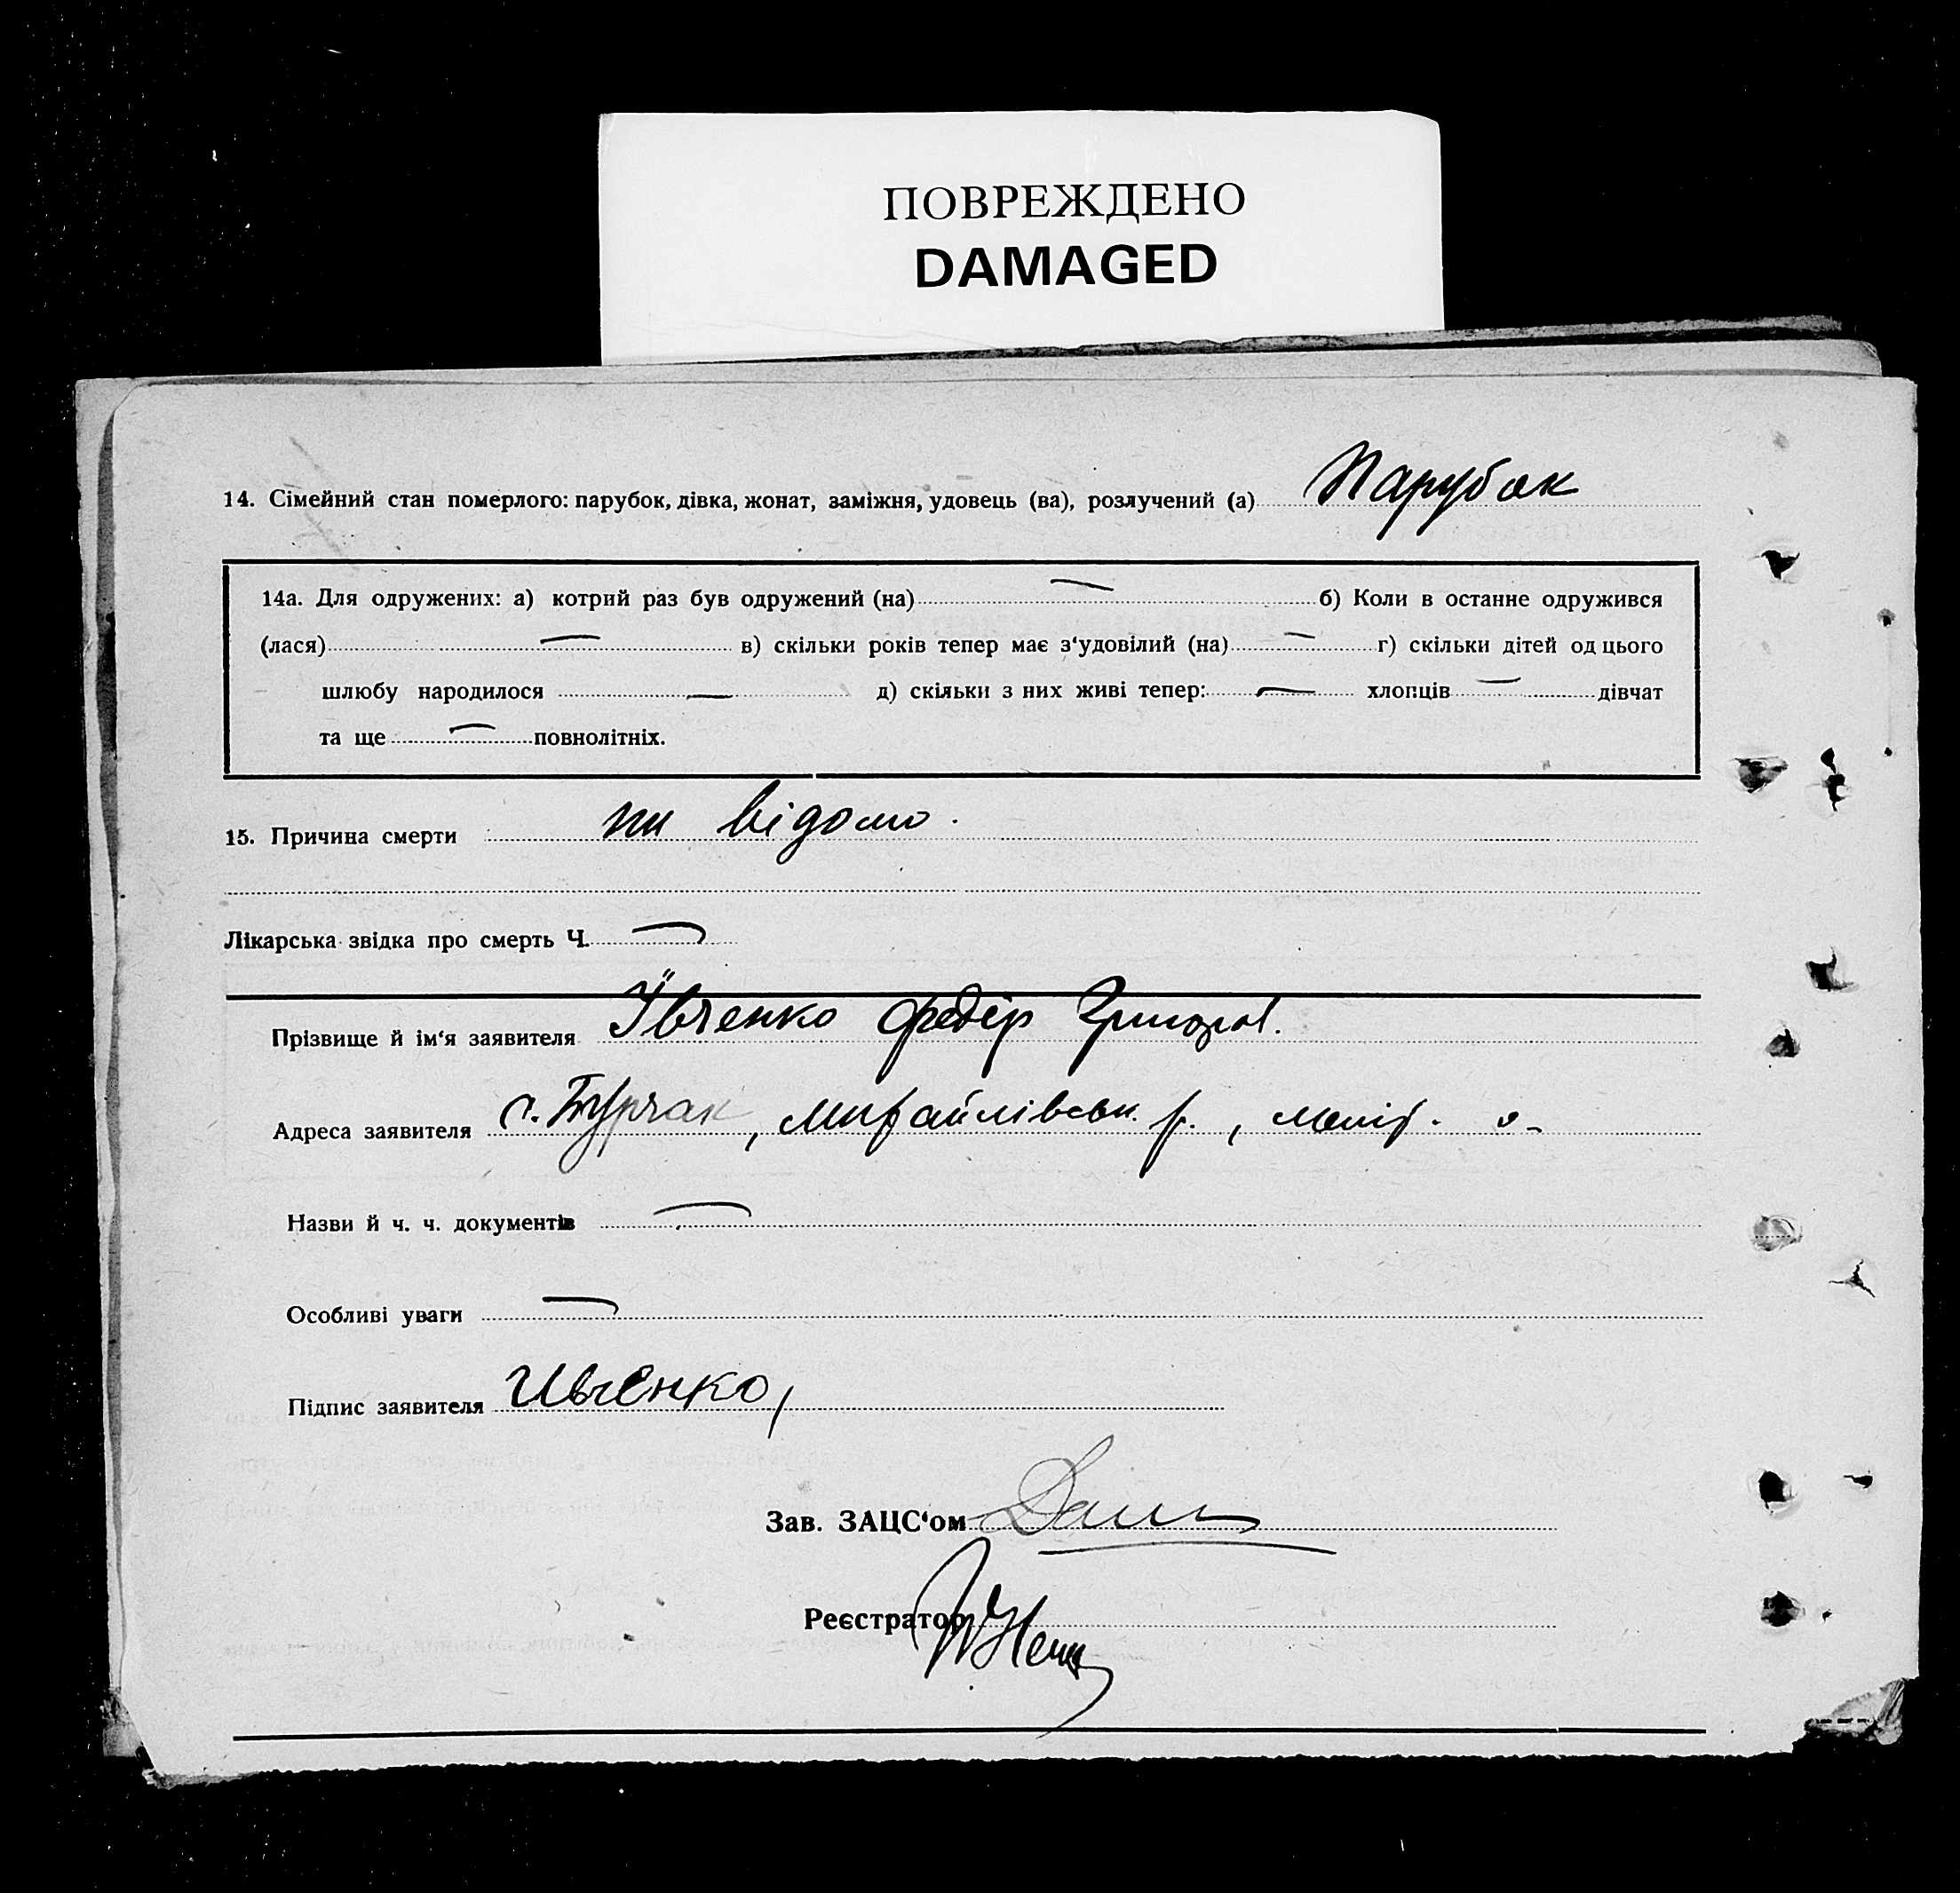 ПОВРЕЖДЕНО
DAMAGED
14. Сімейний стан померлого: парубок, дівка, жонат, заміжня, удовець (ва), розлучений (а) Парубок
14а. Для одружених: а) котрий раз був одружений (на) — б) Коли в останне одружився
(лася) — в) скільки років тепер має з‘удовілий (на) — г) скільки дітей од цього
шлюбу народилося — д) скільки з них живі тепер: — хлопців — дівчат
та ще — повнолітніх.
15. Причина смерти ни відомо.
Лікарська звідка про смерть Ч. —
Прізвище й ім‘я заявителя Ївченко Федір Григоров.
Адреса заявителя с. Турчак, Михайлівськ. р., меліт. о-
Назви й ч. ч. документів —
Особливі уваги —
Підпис заявителя Ивченко,
Зав. ЗАЦС‘ом
Реєстратор